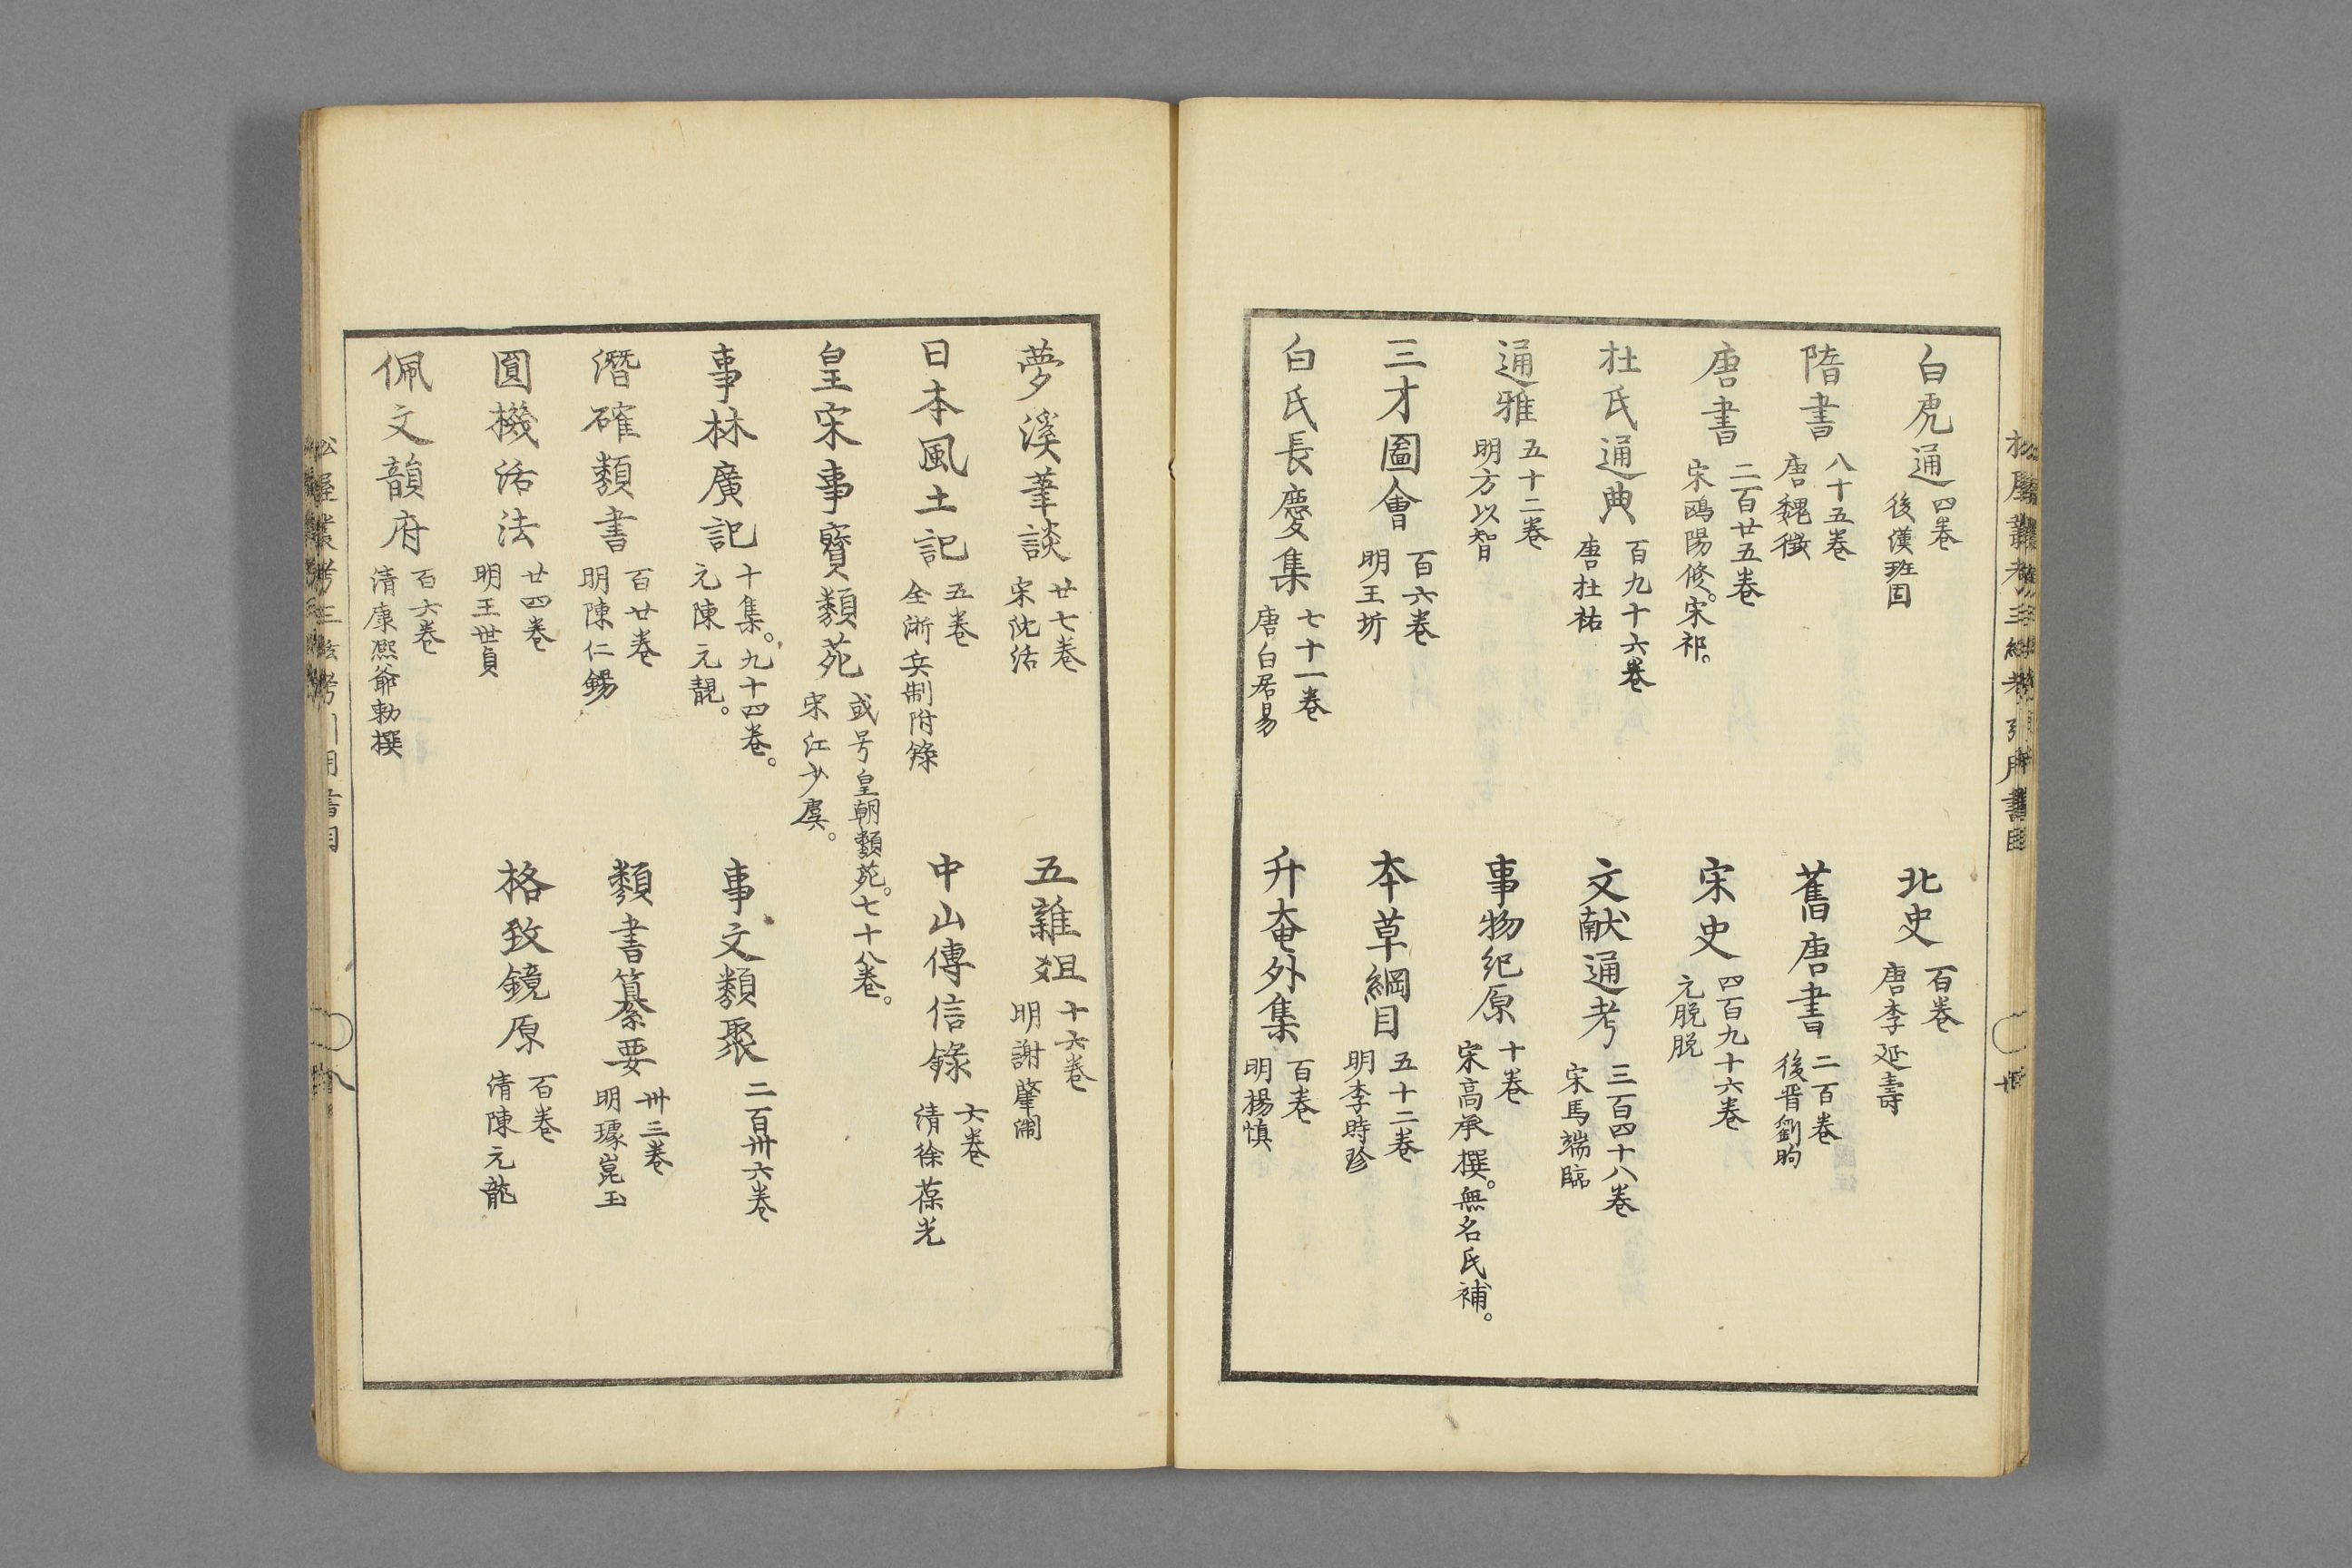 白虎通 四卷 後漢班固
北史 百卷 唐李延壽
隋書 八十五卷 唐魏徵
舊唐書 二百卷 後晋劉昫
唐書 二百廿五卷 宋鴎陽修。宋祁。
宋史 四百九十六卷 元脱脱
杜氏通典 百九十六卷 唐杜祐
文献通考 三百四十八卷 宋馬端臨
通雅 五十二卷 明方以智
事物紀原 十卷 宋高承撰。無名氏補。
三才圖會 百六卷 明王圻
本草綱目 五十二卷 明李時珍
白氏長慶集 七十一卷 唐白居易
升奄外集 百卷 明楊慎
夢溪筆談 廿七卷 宋沈活
五雜爼 十六卷 明謝肇淛
日本風土記 五卷 全浙兵制附錄
中山傳信錄 六卷 清徐葆光
皇宋事寳類苑 或号皇朝類苑。七十八卷。 宋江少虞。
事林廣記 十集。九十四卷。 元陳元靚。
事文類聚 二百卅六卷
潛確類書 百廿卷 明陳仁錫
類書纂要 卅三卷 明璩崑玉
圓機活法 廿四卷 明王世貞
格致鏡原 百卷 清陳元龍
佩文韻府 百六卷 清康熈爺勅撰